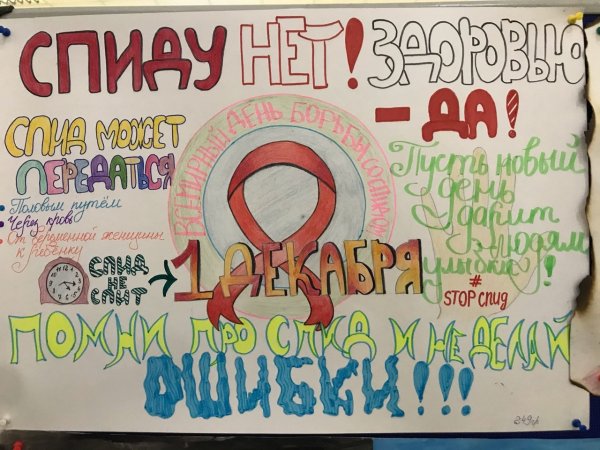 СПИДУ НЕТ! ЗДОРОВЬЮ
- ДА!
ВСЕМИРНЫЙ ДЕНЬ БОРЬБЫ СО СПИДОМ
СПИД МОЖЕТ
ПЕРЕДАТЬСЯ
Половым путём
Через кровь
От беременной женщины
к ребёнку
СПИД
НЕ
СПИТ
1 ДЕКАБРЯ
Пусть новый
день
дарит
людям
улыбки!
#
STOPСПИД
ПОМНИ ПРО СПИД И НЕ ДЕЛАЙ
ОШИБКИ!!!